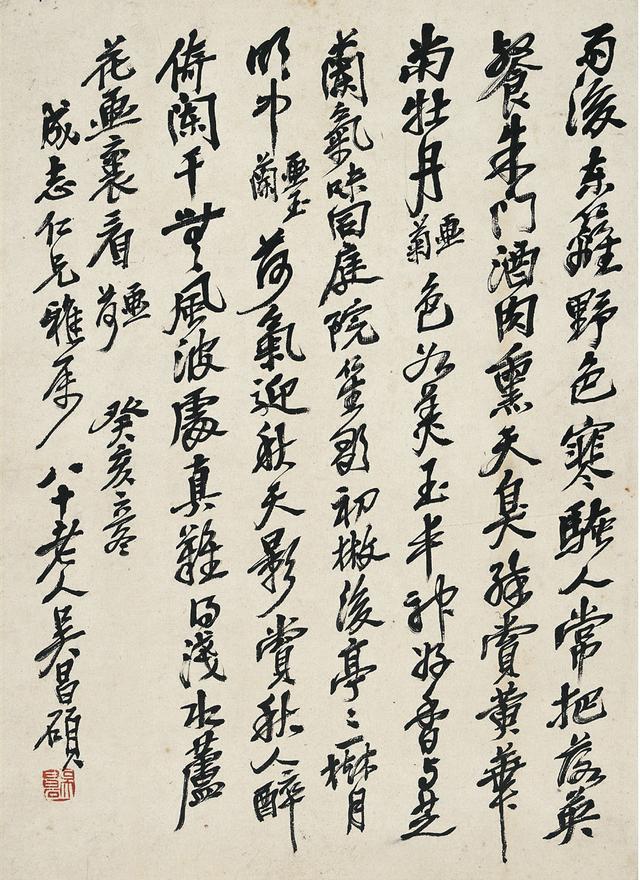 雨後东籬野色寒騷人常把落英
餐朱門酒肉熏天臭賞黃華
當牡丹畫菊色如美玉丰神好香与芝
蘭氣味同庭院簾影初撤後亭亭一樹月
明中畫玉蘭荷氣迎秋天影賞秋人醉
倚闌干無風波處真難得淺水蘆
花畫裏看畫荷癸亥立冬
成志仁兄雅屬八十老人吳昌碩